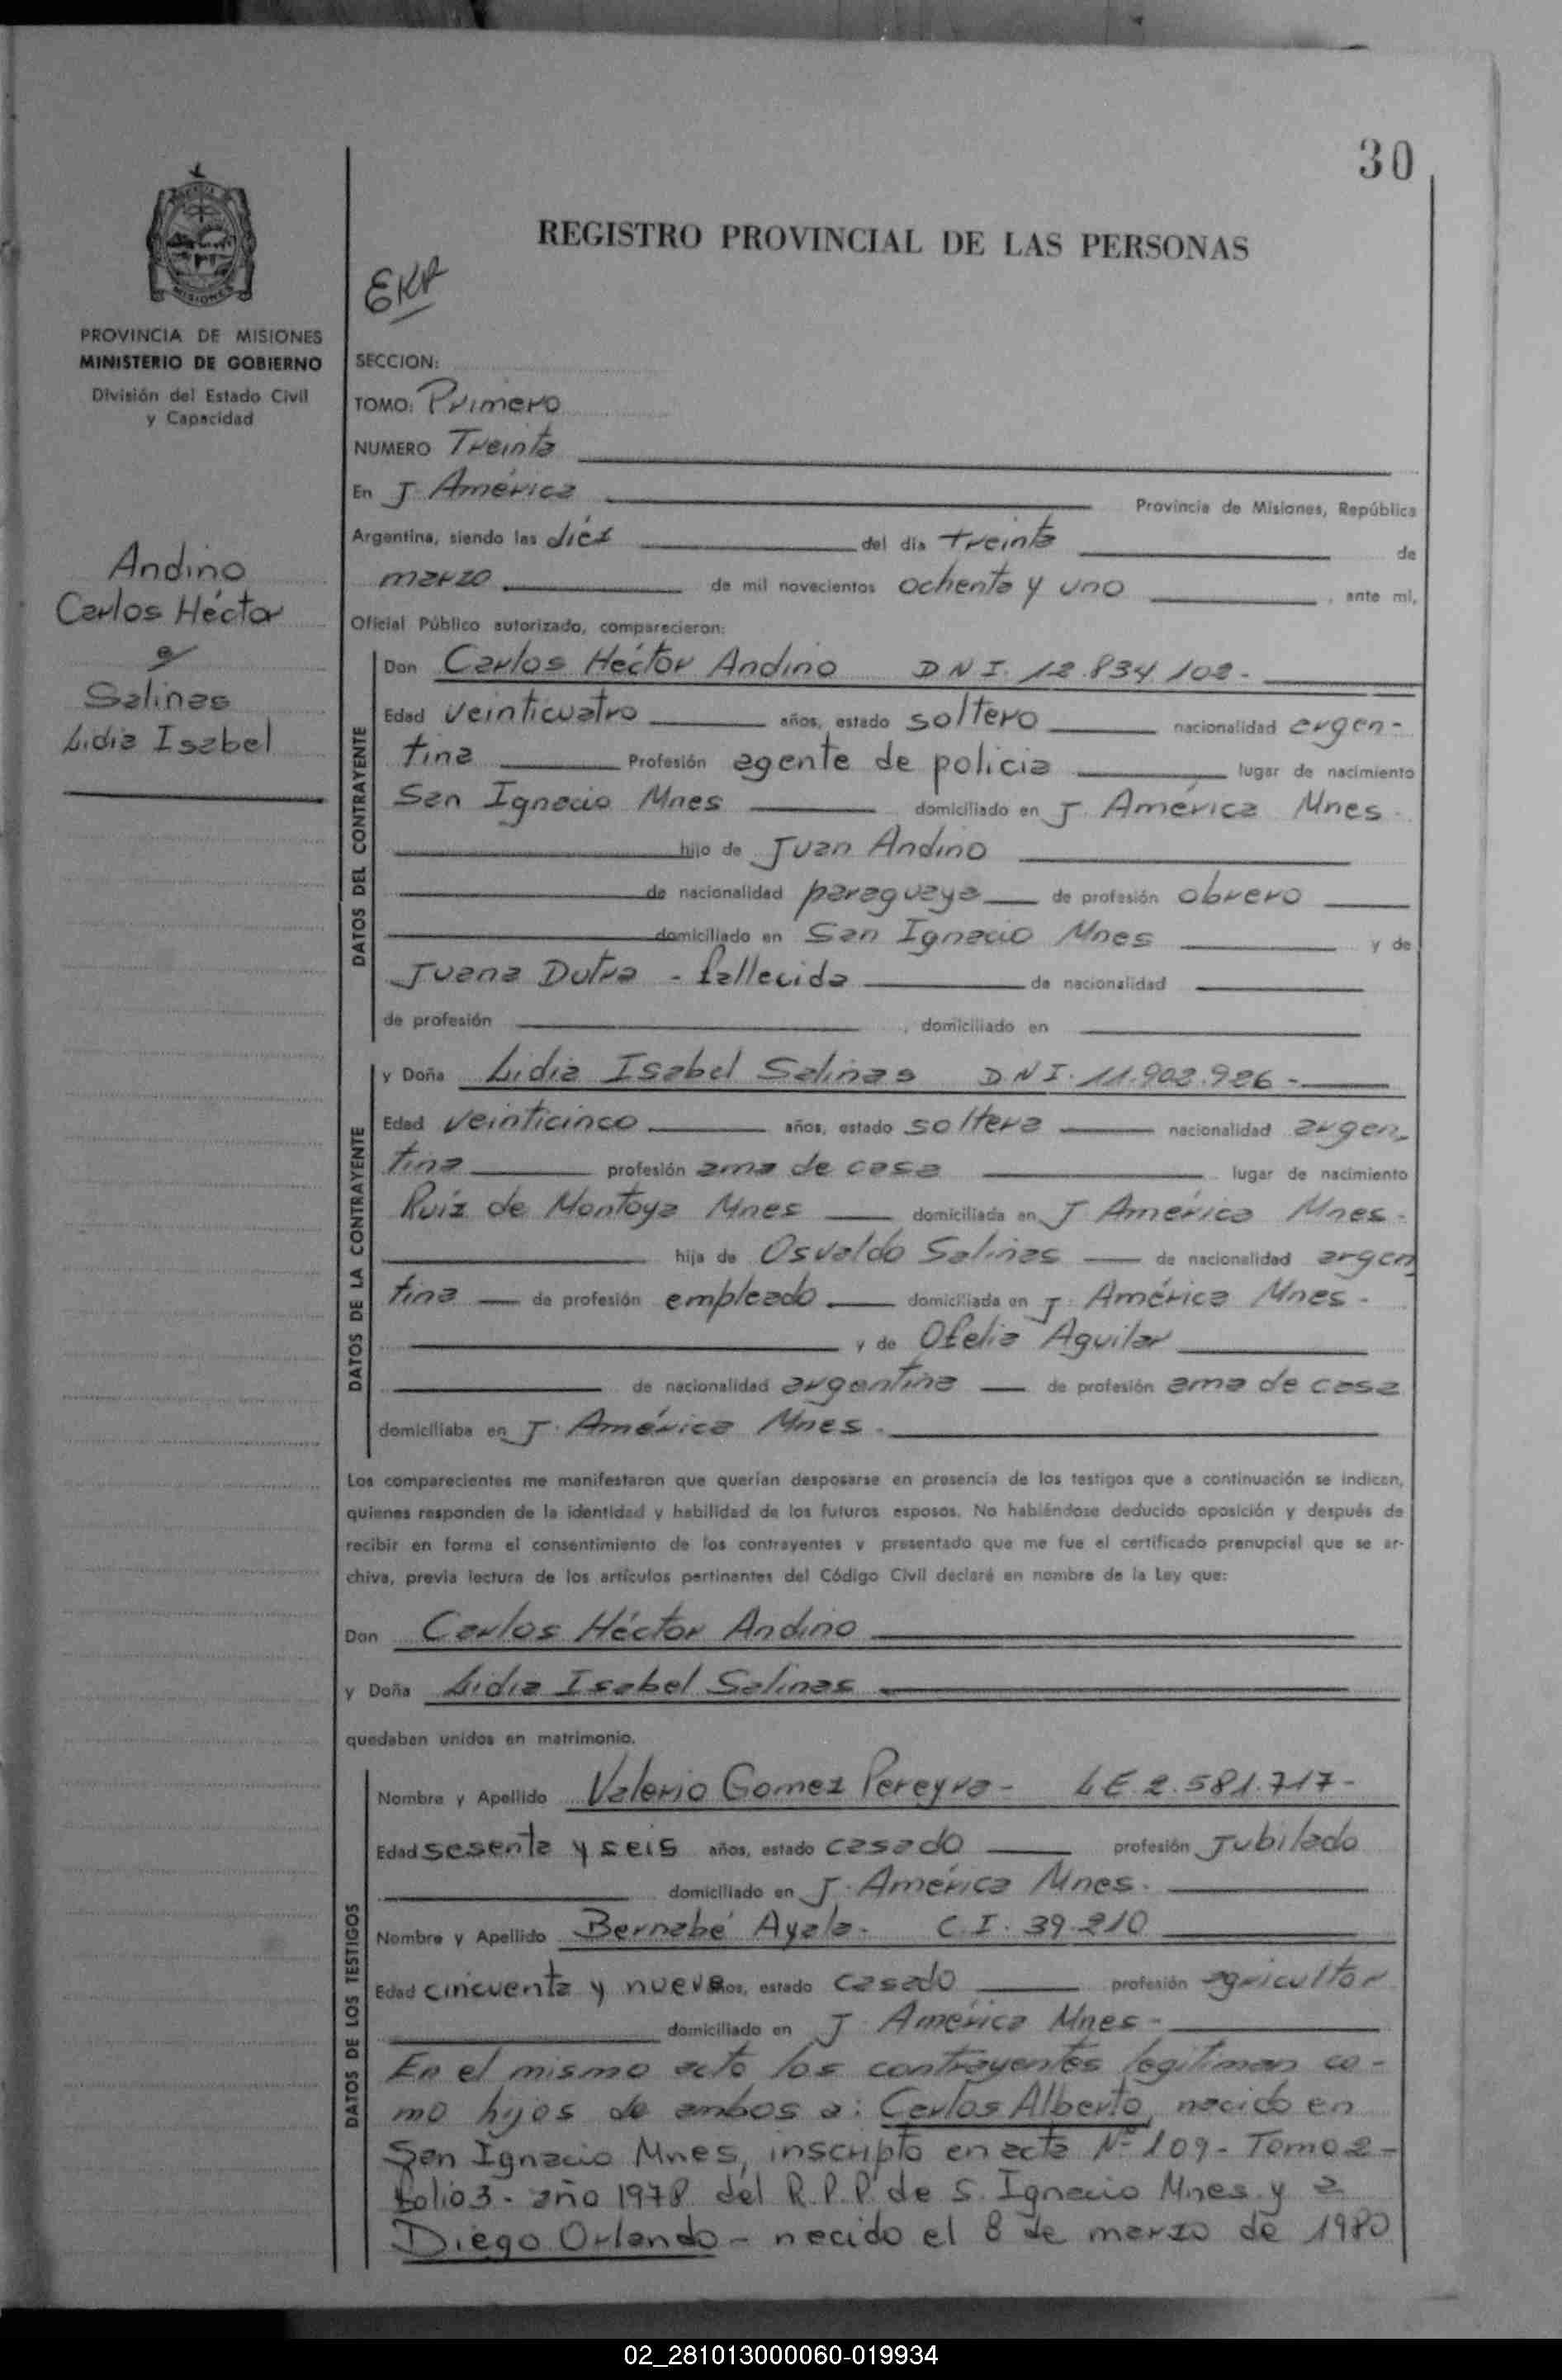 30
REGISTRO PROVINCIAL DE LAS PERSONAS
MISIONES
PROVINCIA DE MISIONES
MINISTERIO DE GOBIERNO
División del Estado Civil
y Capacidad
Andino
Carlos Héctor
Salinas
Lidia Isabel
SECCION:
TOMO: Primero
NUMERO Treinta
En J. América Provincia de Misiones, República
Argentina, siendo las diéz del día treinta de
marzo de mil novecientos ochenta y uno, ante mí,
Oficial Público autorizado, comparecieron:
DATOS DEL CONTRAYENTE
Don Carlos Héctor Andino DNI. 12.834.102.-
Edad veinticuatro años, estado soltero nacionalidad argen-
tina Profesión agente de policia lugar de nacimiento
San Ignacio Mnes domiciliado en J. América Mnes.
hijo de Juan Andino
de nacionalidad paraguaya de profesión obrero
domiciliado en San Ignacio Mnes y de
Juana Dutra - fallecida de nacionalidad
de profesión , domiciliado en
DATOS DE LA CONTRAYENTE
y Doña Lidia Isabel Salinas DNI. 11.902.926.-
Edad veinticinco años, estado soltera nacionalidad argen-
tina profesión ama de casa lugar de nacimiento
Ruíz de Montoya Mnes domiciliada en J. América Mnes.
hija de Osvaldo Salinas de nacionalidad argen
tina de profesión empleado domiciliada en J. América Mnes.
y de Ofelia Aguilar
de nacionalidad argentina de profesión ama de casa
domiciliaba en J. América Mnes.
Los comparecientes me manifestaron que querían desposarse en presencia de los testigos que a continuación se indican,
quienes responden de la identidad y habilidad de los futuros esposos. No habiéndose deducido oposición y después de
recibir en forma el consentimiento de los contrayentes y presentado que me fue el certificado prenupcial que se ar-
chiva, previa lectura de los artículos pertinentes del Código Civil declaré en nombre de la Ley que:
Don Carlos Héctor Andino
y Doña Lidia Isabel Salinas
quedaban unidos en matrimonio.
DATOS DE LOS TESTIGOS
Nombre y Apellido Valerio Gomez Pereyra - LE. 2.581.717-
Edad sesenta y seis años, estado casado profesión Jubilado
domiciliado en J. América Mnes.
Nombre y Apellido Bernabé Ayala - C.I. 39.210
Edad cincuenta y nueve años, estado casado profesión agricultor
domiciliado en J. América Mnes -
En el mismo acto los contrayentes legitiman co-
mo hijos de ambos a: Carlos Alberto, nacido en
San Ignacio Mnes, inscripto en acta Nº 109 - Tomo 2 -
folio 3 - año 1978 del R.P.P. de S. Ignacio Mnes y a
Diego Orlando - nacido el 8 de marzo de 1980
02_281013000060-019934